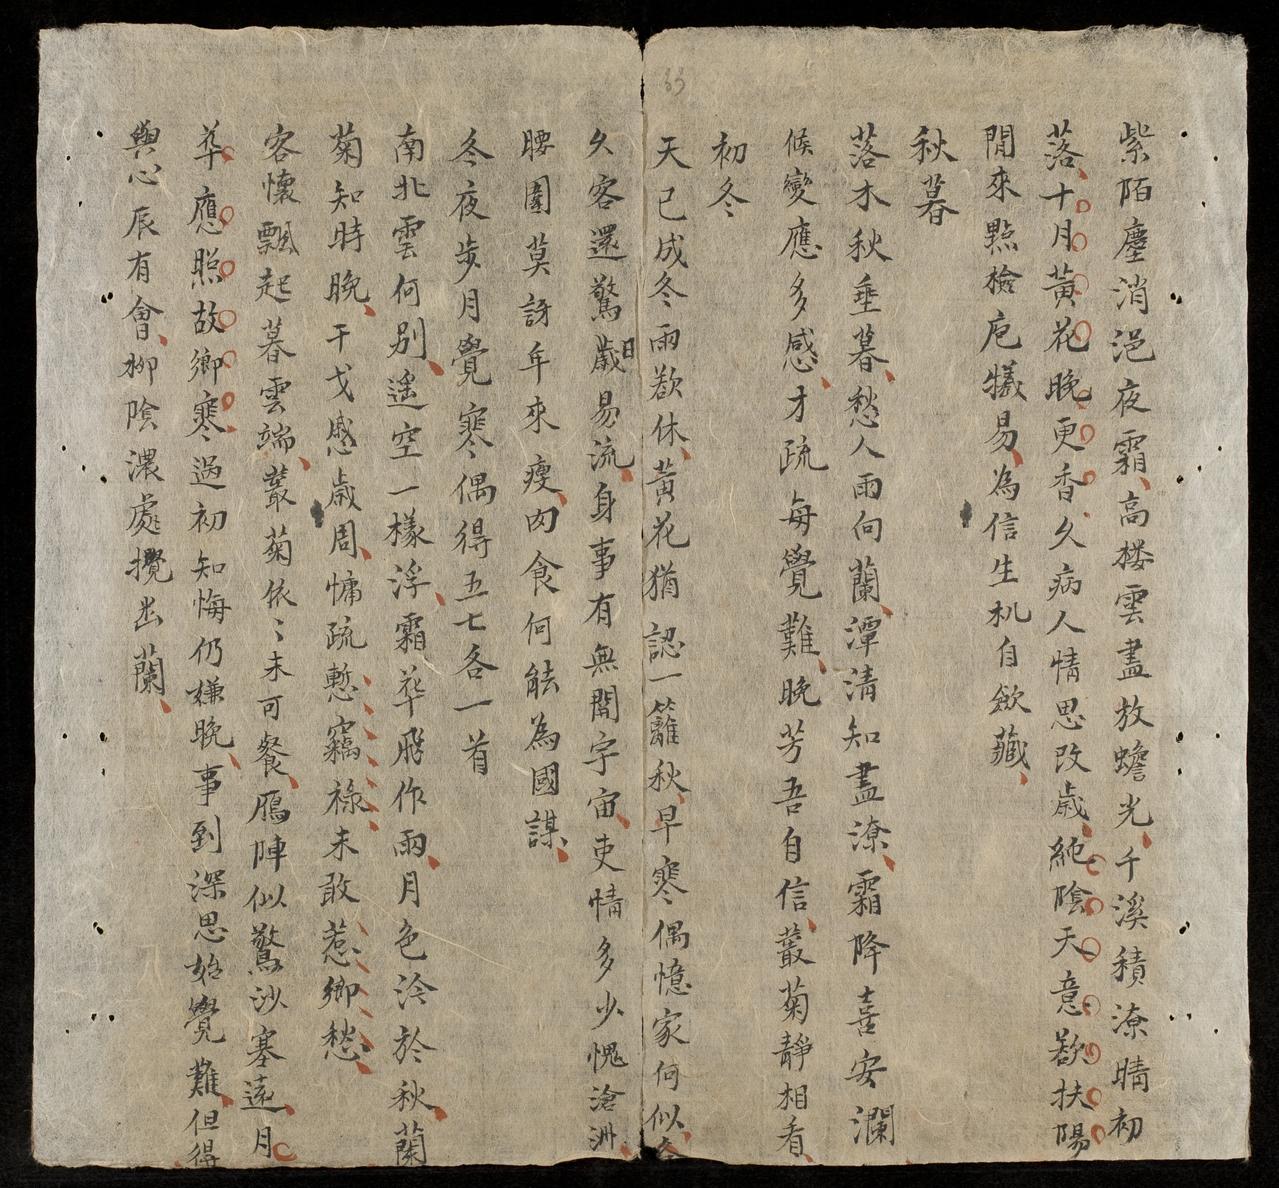 紫陌塵消浥夜霜高楼雲盡放蟾光千溪積潦晴初
落十月黃花晚更香久病人情思改歲純陰天意欲扶陽
閒來點檢庖犧易為信生机自歛藏
秋暮
落木秋垂暮愁人雨向蘭潭清知盡潦霜降喜安瀾
候變應多感才疏每覺難晚芳吾自信叢菊靜相看
初冬
天已成冬雨欲休黃花猶認一籬秋早寒偶憶家何似
久客還驚歲易流身事有無關宇宙吏情多少愧滄洲
腰圍莫訝年來瘦肉食何能為國謀
冬夜步月覺寒偶得五七各一首
南北雲何别遥空一樣浮霜華飛作雨月色泠於秋蘭
菊知時晚干戈感歲周慵疏慙竊祿未敢惹鄉愁
客懷飄起暮雲端叢菊依〻未可餐鴈陣似驚沙塞遠月
華應照故鄉寒過初知悔仍嫌晚事到深思始覺難但得
與心辰有會柳陰濃處攬出蘭